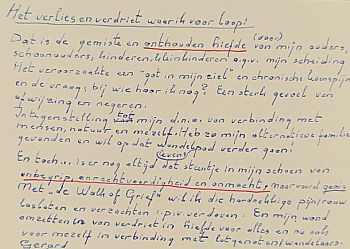 Het verlies en verdriet waar ik voor loop!
(voor)
Dat is de gemiste en onthouden liefde van mijn ouders,
schoonouders, kinderen, kleinkinderen a.g.v. mijn scheiding
Het veroorzaakte een "gat in mijn ziel" en chronische levenspijn
en de vraag: bij wie hoor ik nog? Een sterk gevoel van
afwijzing en negeren.
In tegenstelling tot mijn d.n.a. van verbinding met
mensen, natuur en mezelf. Heb zo mijn alternatieve familie
gevonden en wil op dat wandelpad verder gaan!
(even)
En toch... is er nog altijd dat steentje in mijn schoen van
onbegrip, onrechtvaardigheid en onmacht, waarvoor
Met "de Walk of Grief" wil ik die hardnekkige pijn/rouw
loslaten en verzachten i.p.v. verdoven! En mijn wond
omzetten van verdriet in liefde voor alles en nu ook
voor mezelf in verbinding met lotgenoten/wandelaars.
Gerard